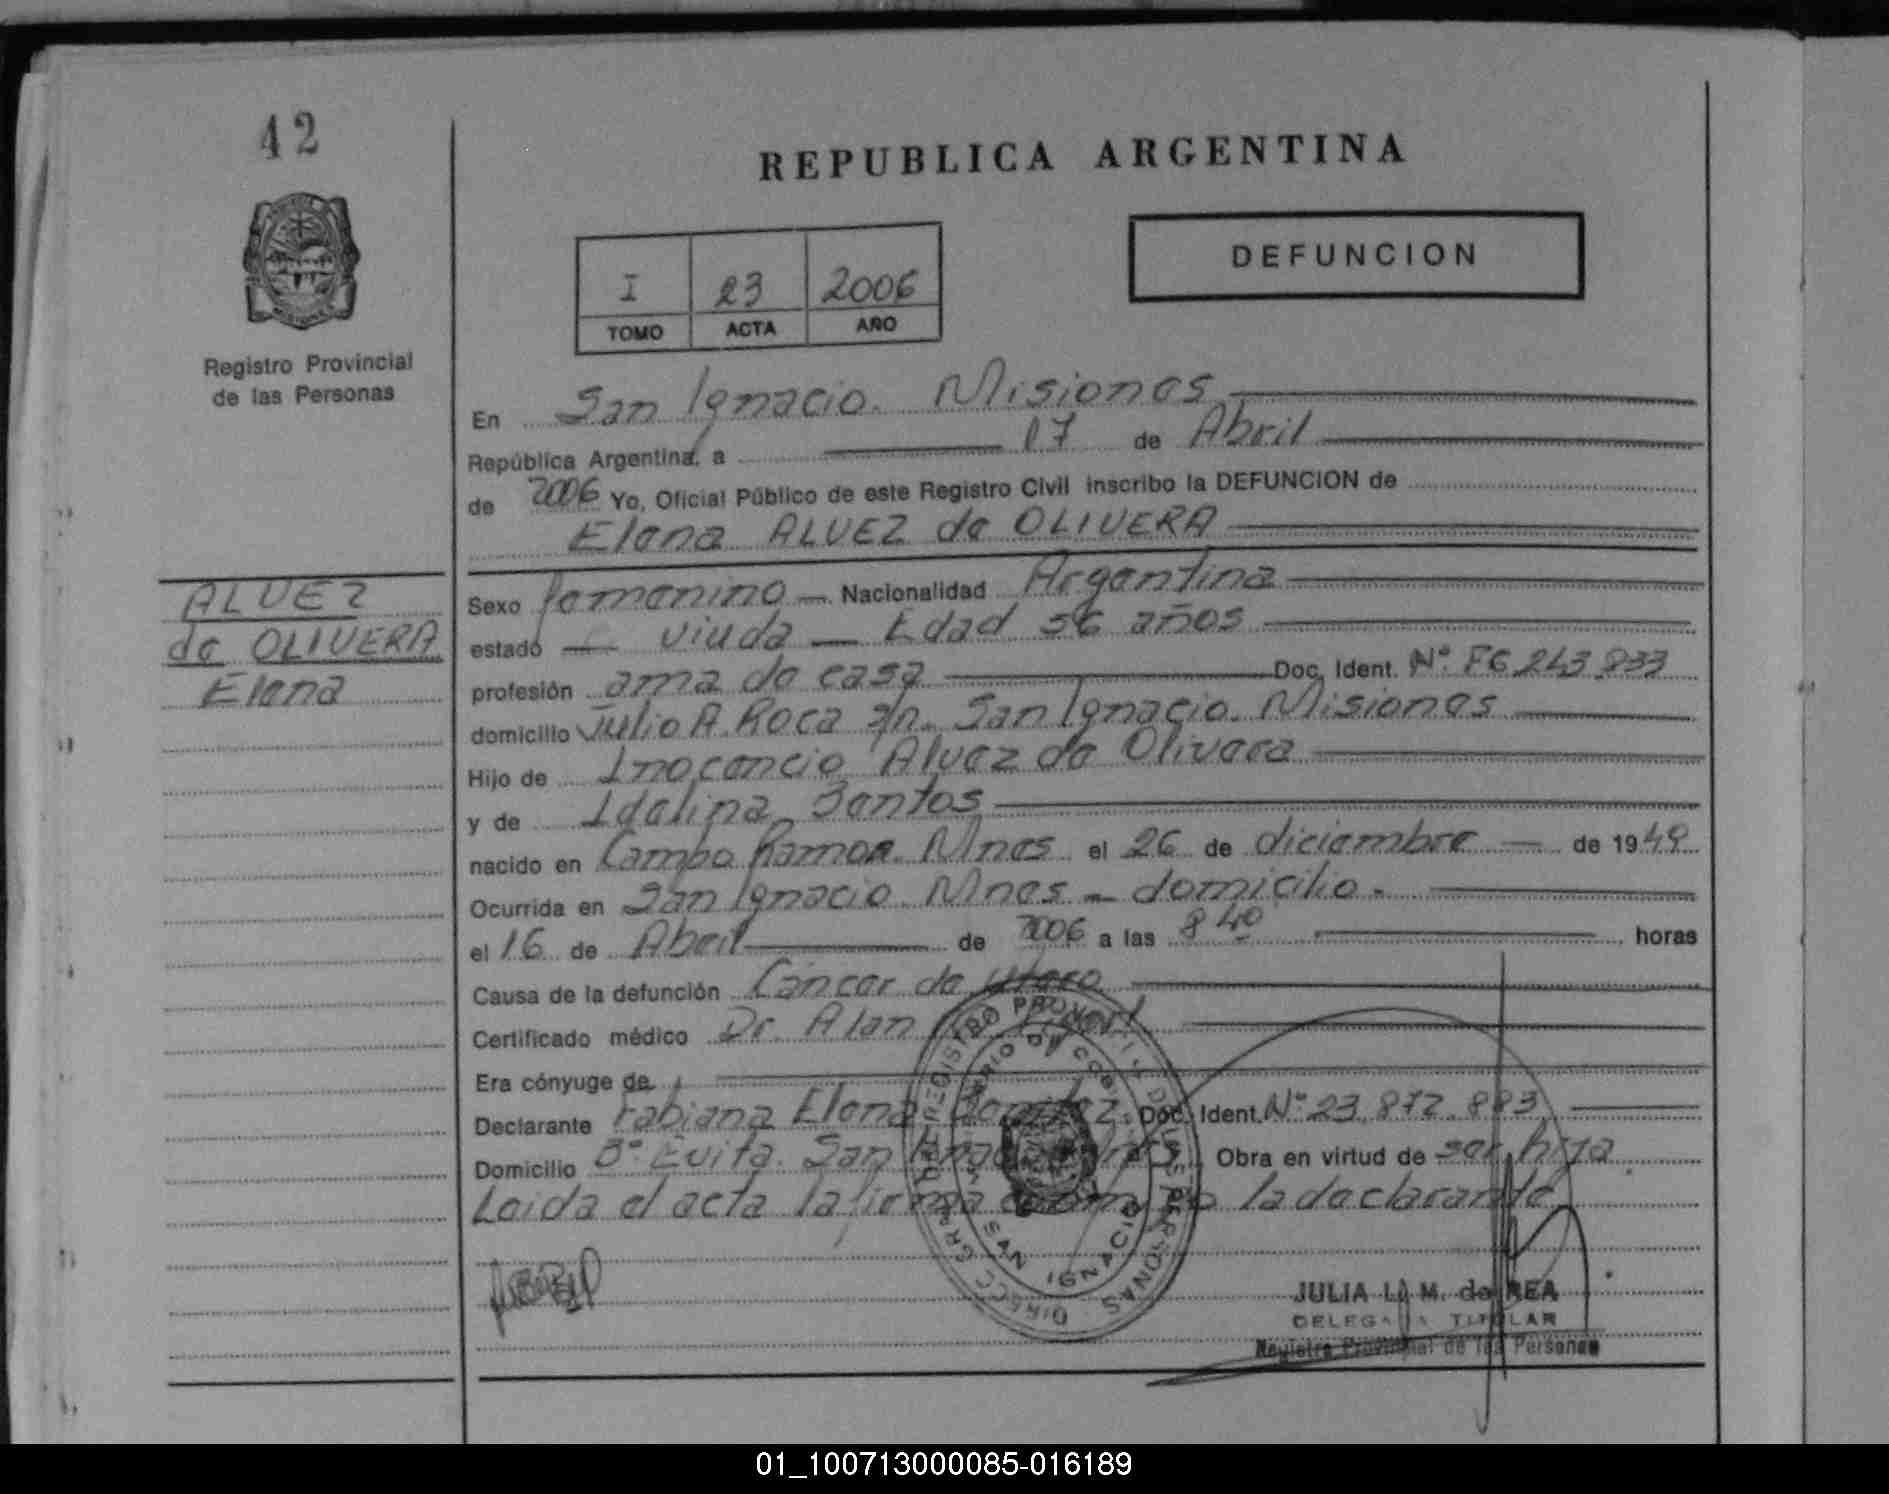 42
REPUBLICA ARGENTINA
DEFUNCION
I 23 2006
TOMO ACTA AÑO
Registro Provincial
de las Personas
En San Ignacio. Misiones
República Argentina, a 17 de Abril
de 2006 Yo, Oficial Público de este Registro Civil inscribo la DEFUNCION de
Elena ALVEZ de OLIVERA
ALVEZ
de OLIVERA
Elena
Sexo femenino - Nacionalidad Argentina
estado viuda - Edad 56 años
profesión ama de casa Doc. Ident. Nº F6.243.833
domicilio Julio A. Roca s/n. San Ignacio. Misiones
Hijo de Inocencio Alvez de Olivera
y de Idalina Santos
nacido en Campo Ramon. Mnes el 26 de diciembre - de 1949
Ocurrida en San Ignacio. Mnes - domicilio.
el 16 de Abril de 2006 a las 8 40 horas
Causa de la defunción Cáncer de utero
Certificado médico Dr. Alan
Era cónyuge de
Declarante Fabiana Elena Doc. Ident. Nº 23.872.883
Domicilio Bº Evita. San Ignacio Obra en virtud de ser hija
Leida el acta la firma la declarante
SAN IGNACIO
JULIA L. M. de REA
DELEGADA TITULAR
Registro Provincial de las Personas
01_100713000085-016189